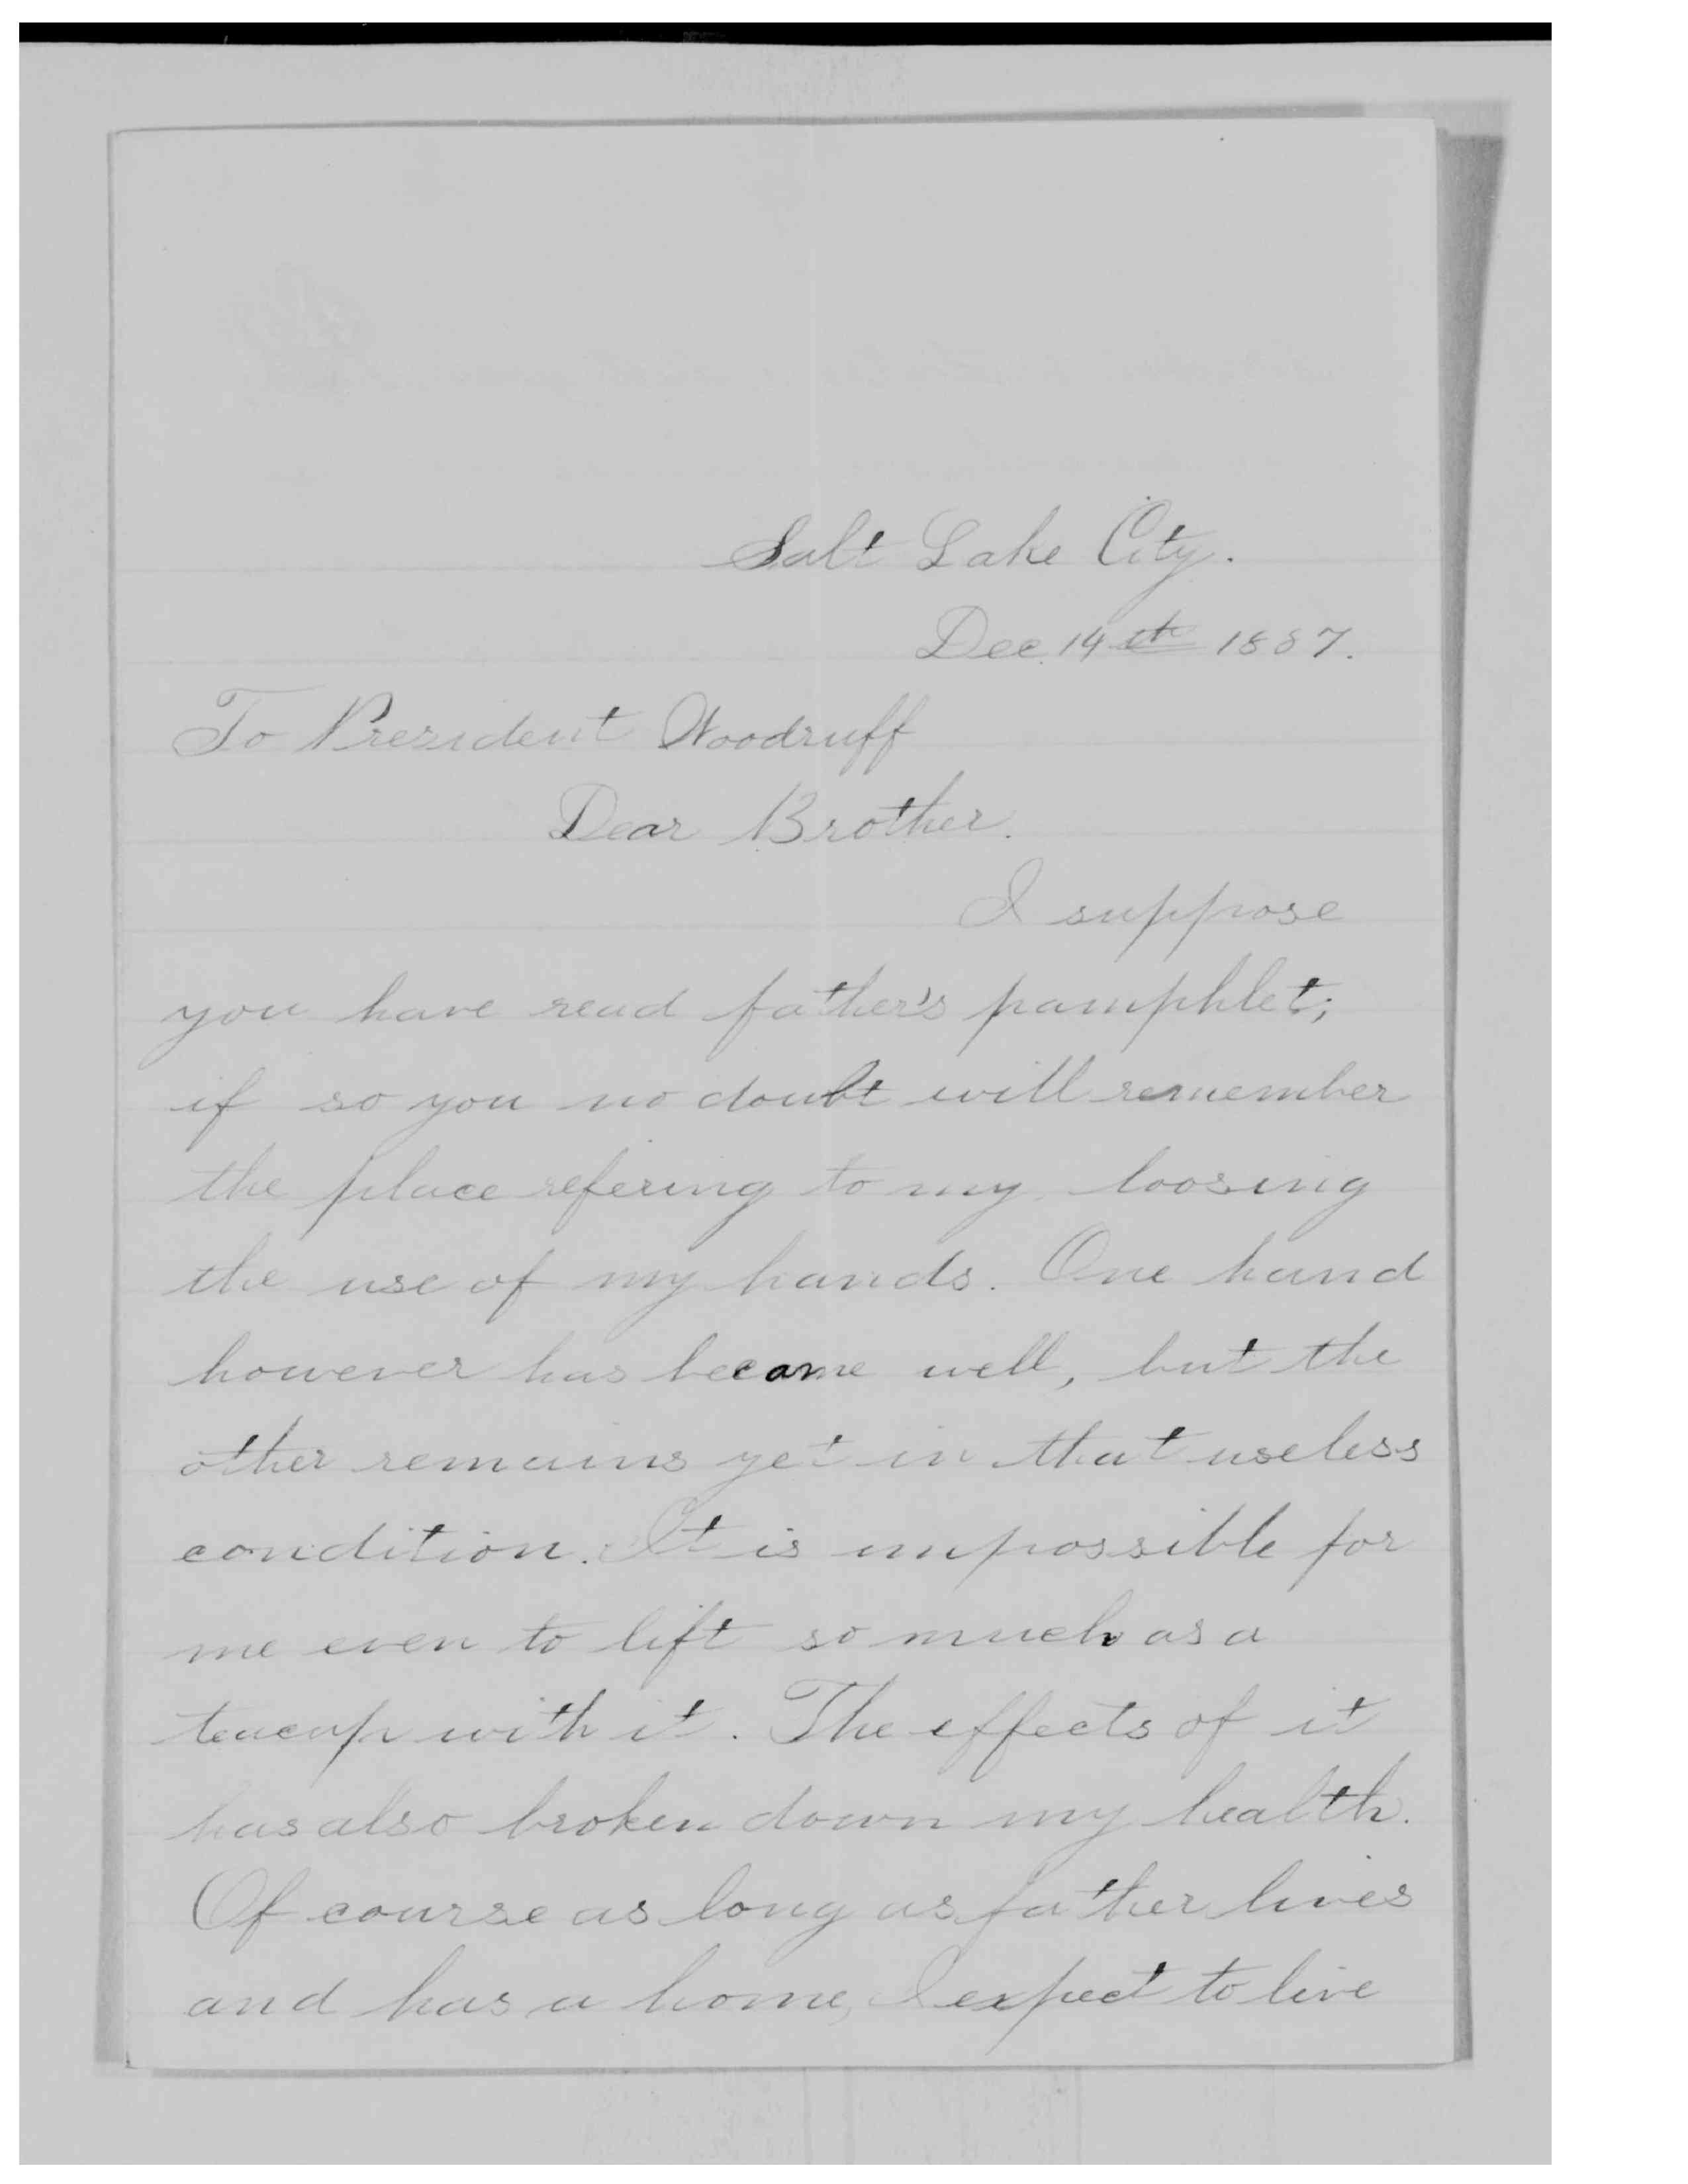 Salt Lake City.
Dec. 14th 1887.
To President Woodruff
Dear Brother.
I suppose
you have read father's pamphlet;
if so you no doubt will remember
the place refering to my loosing
the use of my hands. One hand
however has become well, but the
other remains yet in that useless
condition. It is impossible for
me even to lift so much as a
teacup with it. The effects of it
has also broken down my health.
Of course as long as father lives
and has a home, I expect to live